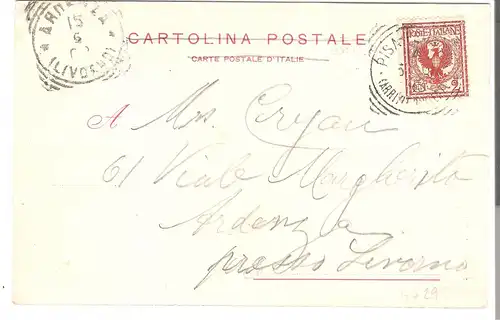 ARDENZA
15
6
(LIVORNO)
CARTOLINA POSTALE
CARTE POSTALE D'ITALIE
POSTE ITALIANE
2
PISA
(ARRIVI
A Mrs. Cryan
61 Viale Margherita
Ardenza
presso Livorno